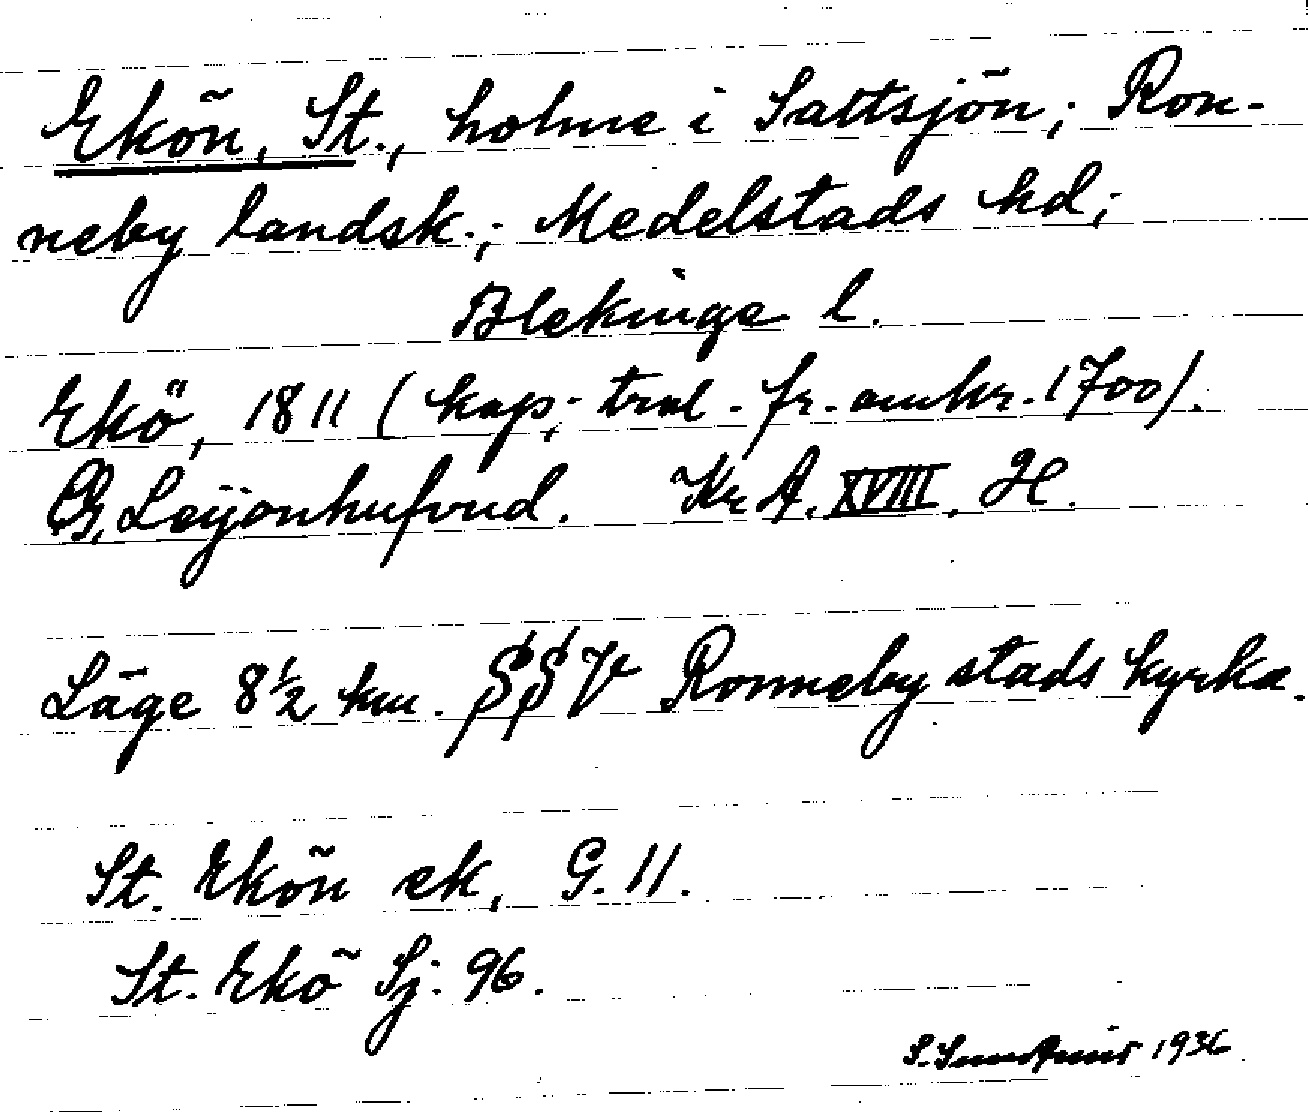 Ekön, St., holme i Saltsjön; Ron-
neby landsk.; Medelstads hd;
Blekinge l.
Ekö, 1811 (kop. trol. fr. omkr. 1700).
G. Leijonhufvud. Kr A. XVIII. H.
Läge 8½ km. SSV Ronneby stads kyrka.
St. Ekön ek, G. 11.
St. Ekö Sj. 96.
S. 1936